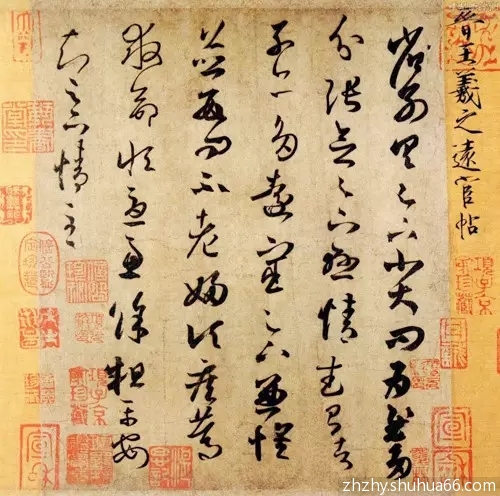 晉王羲之遠宦帖
省別具足下小大問為慰多
分張念足下懸情武昌諸
子亦多遠宦足下兼懷
並數問不老婦頃疾篤
救命恒憂慮餘粗平安
知足下情至
項子京
家珍藏
zhzhy.shuhua66.com